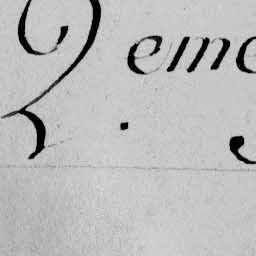 2. eme